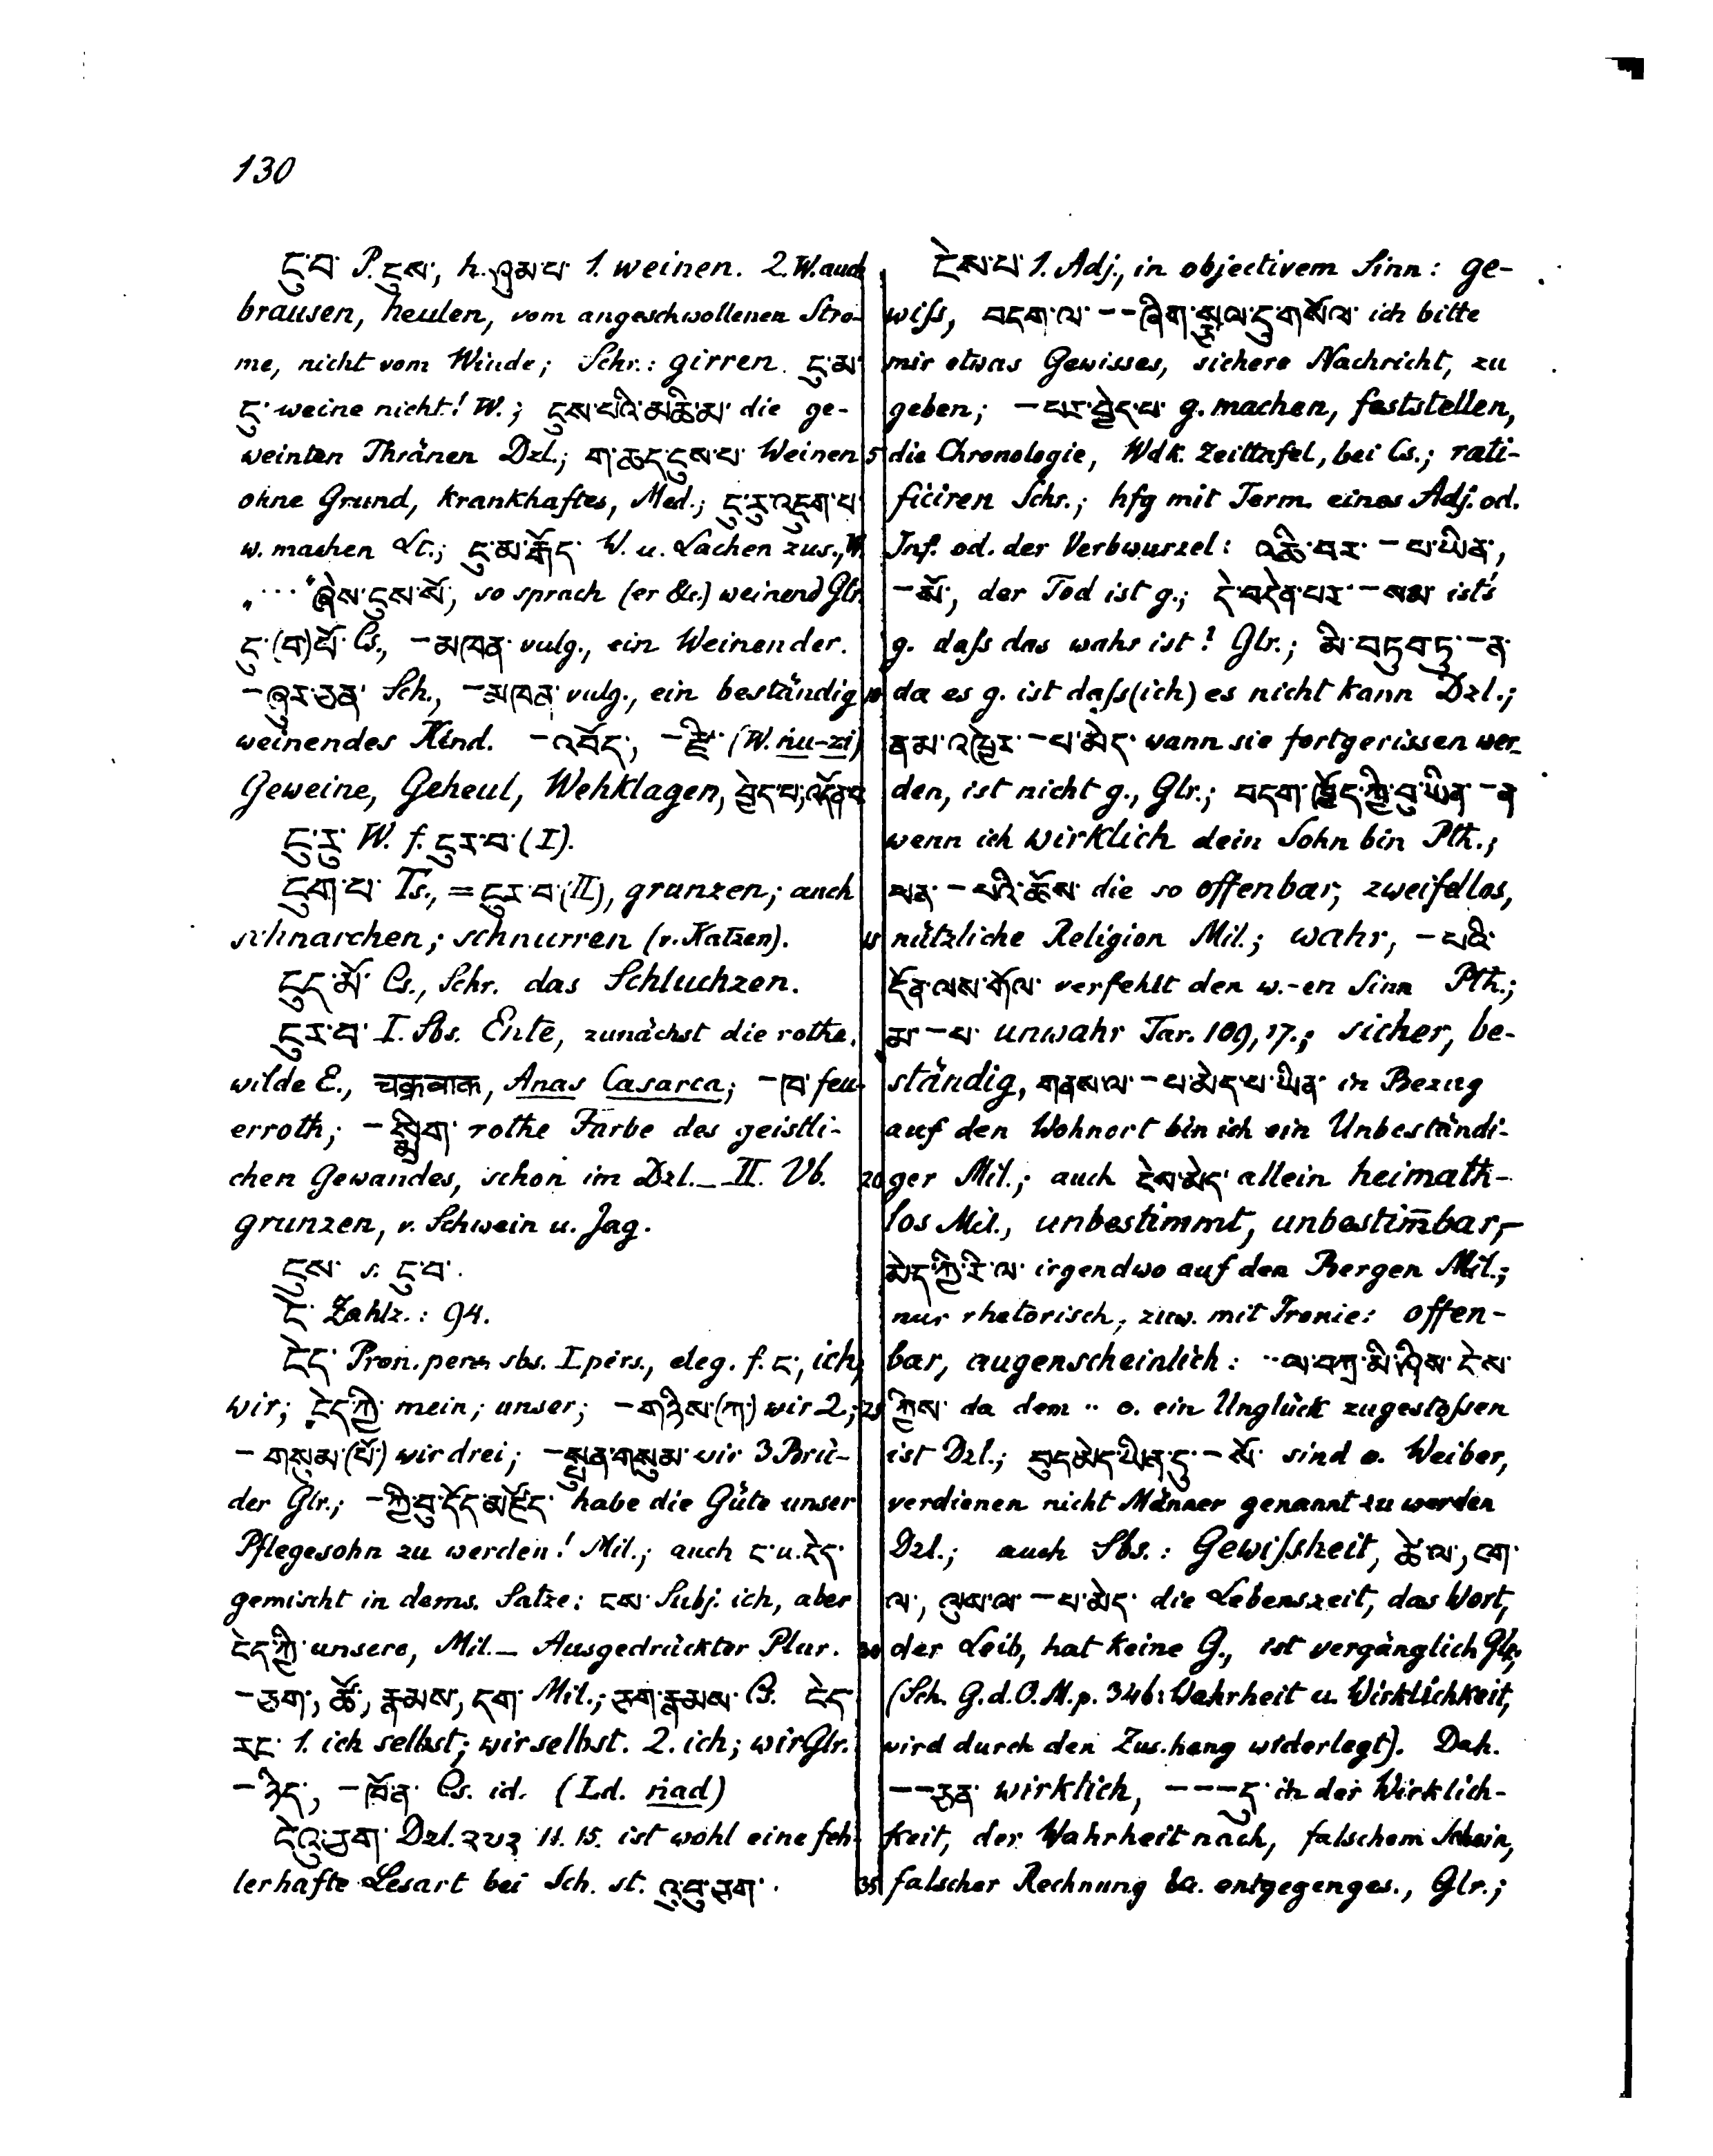 130
ངུ་བ་ P. ངུས་, h. ཤུམ་པ་ 1. weinen. 2. W. auch
brausen, heulen, vom angeschwollenen Stro-
me, nicht vom Winde; Schr.: girren. ངུ་མ་
ངུ་ weine nicht! W.; ངུས་པའི་མཆི་མ་ die ge-
weinten Thränen Dzl.; ག་ཆད་ངུས་པ་ Weinen
ohne Grund, krankhaftes, Med.; ངུ་རུ་འཇུག་པ་
w. machen Lt.; ངུ་མ་རྒོད་ W. u. Lachen zus., W.
„ ··· “ ཞེས་ངུས་སོ་, so sprach (er &c.) weinend Glr.
ངུ་(བ)པོ་ Cs., -མཁན་ vulg., ein Weinender.
-ཞུར་ཅན་ Sch., -མཁན་ vulg., ein beständig
weinendes Kind. -འབོད་, -ཛི་ (W. ṅu-zi)
Geweine, Geheul, Wehklagen, བྱེད་པ་, འདོན་པ་
ངུ་རུ་ W. f. ངུར་བ་ (I).
ངུག་པ་ Ts., = ངུར་བ་ (II), grunzen; auch
schnarchen; schnurren (v. Katzen).
ངུད་མོ་ Cs., Schr. das Schluchzen.
ངུར་བ་ I. Sbs. Ente, zunächst die rothe,
wilde E., चक्रवाक, Anas Casarca; -ཁ་ feu-
erroth; -སྨྲིག་ rothe Farbe des geistli-
chen Gewandes, schon im Dzl. _ II. Vb.
grunzen, v. Schwein u. Jag.
ངུས་ s. ངུ་བ་.
ངེ་ Zahlz.: 94.
ངེད་ Pron. pers. sbs. I pers., eleg. f. ང་, ich,
wir; ངེད་ཀྱི་ mein; unser; -གཉིས་(ཀ་) wir 2;
-གསུམ་(པོ་) wir drei; -སྤུན་གསུམ་ wir 3 Brü-
der Glr.; -ཀྱི་བུ་ངོད་མཛོད་ habe die Güte unser
Pflegesohn zu werden! Mil.; auch ང་ u. ངེད་
gemischt in dems. Satze: ངས་ Subj. ich, aber
ངེད་ཀྱི་ unsere, Mil. _ Ausgedrückter Plur.
-ཅག་, ཚོ་, རྣམས་, དག་ Mil.; ཅག་རྣམས་ Cs. ངེད་
རང་ 1. ich selbst; wir selbst. 2. ich; wir Glr.
-ཉིད་, -བོན་ Cs. id. (Ld. ṅad)
ངེའུ་ཅག་ Dzl. ༢༧༣ 11. 15. ist wohl eine feh-
lerhafte Lesart bei Sch. st. འུ་བུ་ཅག་.
ངེས་པ་ 1. Adj., in objectivem Sinn: ge-
wiſs, བདག་ལ་ - - ཞིག་སྩལ་དུ་གསོལ་ ich bitte
mir etwas Gewisses, sichere Nachricht, zu
geben; -པར་བྱེད་པ་ g. machen, feststellen,
5 die Chronologie, Wdk. Zeittafel, bei Cs.; rati-
ficiren Schr.; hfg mit Term. eines Adj. od.
Inf. od. der Verbwurzel: འཆི་བར་ -པ་ཡིན་,
-སོ་, der Tod ist g.; དེ་བདེན་པར་ -སམ་ ist's
g. daſs das wahr ist? Glr.; མི་བཏུབ་ཏུ་ -ན་
10 da es g. ist daſs (ich) es nicht kann Dzl.;
ནམ་འཁྱེར་ -པ་མེད་ wann sie fortgerissen wer-
den, ist nicht g., Glr.; བདག་ཁྱོད་ཀྱི་བུ་ཡིན་ -ན་
wenn ich wirklich dein Sohn bin Pth.;
ཕན་ -པའི་ཆོས་ die so offenbar, zweifellos,
15 nützliche Religion Mil.; wahr, -པའི་
དོན་ལས་གོལ་ verfehlt den w.-en Sinn Pth.;
མ་ -པ་ unwahr Tar. 109, 17.; sicher, be-
ständig, གནས་ལ་ -པ་མེད་པ་ཡིན་ in Bezug
auf den Wohnort bin ich ein Unbeständi-
20 ger Mil.; auch ངེས་མེད་ allein heimath-
los Mil., unbestimmt, unbestim̄bar, -
མེད་ཀྱི་རི་ལ་ irgendwo auf den Bergen Mil.;
nur rhetorisch, zuw. mit Ironie: offen-
bar, augenscheinlich: ··ལ་བཀྲ་མི་ཤིས་ ངེས་
25 ཀྱིས་ da dem ·· o. ein Unglück zugestoſsen
ist Dzl.; བུད་མེད་ཡིན་དུ་ -སོ་ sind o. Weiber,
verdienen nicht Männer genannt zu werden
Dzl.; auch Sbs.: Gewiſsheit, ཚེ་ལ་, ངག་
ལ་, ལུས་ལ་ -པ་མེད་ die Lebenszeit, das Wort,
30 der Leib, hat keine G., ist vergänglich Glr,
(Sch. G. d. O. M. p. 346: Wahrheit u. Wirklichkeit,
wird durch den Zus.hang widerlegt). Dah.
- - ཅན་ wirklich, - - - དུ་ in der Wirklich-
keit, der Wahrheit nach, falschem Schein,
35 falscher Rechnung &a. entgegenges., Glr.;